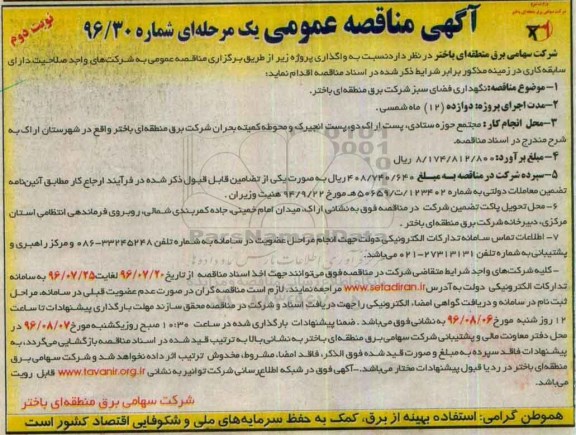 آگهی مناقصه عمومی یک مرحله‌ای شماره ۹۶/۳۰
نوبت دوم
شرکت سهامی برق منطقه‌ای باختر در نظر دارد نسبت به واگذاری پروژه زیر از طریق برگزاری مناقصه عمومی به شرکت‌های واجد صلاحیت دارای
سابقه کاری در زمینه مذکور برابر شرایط ذکر شده در اسناد مناقصه اقدام نماید:
۱- موضوع مناقصه: نگهداری فضای سبز شرکت برق منطقه‌ای باختر.
۲- مدت اجرای پروژه: دوازده (۱۲) ماه شمسی.
۳- محل انجام کار: مجتمع حوزه ستادی، پست اراک دو، پست انجیرک و محوطه کمیته بحران شرکت برق منطقه‌ای باختر واقع در شهرستان اراک به
شرح مندرج در اسناد مناقصه.
۴- مبلغ برآورد: ۸/۱۷۴/۸۱۲/۸۰۰ ریال
۵- سپرده شرکت در مناقصه به مبلغ ۴۰۸/۷۴۰/۶۴۰ ریال به صورت یکی از تضامین قابل قبول ذکر شده در فرآیند ارجاع کار مطابق آئین‌نامه
تضمین معاملات دولتی به شماره ۱۲۳۴۰۲/ت۵۰۶۵۹هـ مورخ ۹۴/۹/۲۲ هیئت وزیران.
۶- محل تحویل پاکت تضمین شرکت در مناقصه فوق به نشانی اراک، میدان امام خمینی، جاده کمربندی شمالی، روبروی فرماندهی انتظامی استان
مرکزی، دبیرخانه شرکت برق منطقه‌ای باختر.
۷- اطلاعات تماس سامانه تدارکات الکترونیکی دولت جهت انجام مراحل عضویت در سامانه به شماره تلفن ۳۳۲۴۵۲۴۸-۰۸۶ و مرکز راهبری و
پشتیبانی به شماره تلفن ۲۷۳۱۳۱۳۱-۰۲۱ می‌باشد.
- کلیه شرکت‌های واجد شرایط متقاضی شرکت در مناقصه فوق می‌توانند جهت اخذ اسناد مناقصه از تاریخ ۹۶/۰۷/۲۰ لغایت ۹۶/۰۷/۲۵ به سامانه
تدارکات الکترونیکی دولت به آدرس www.setadiran.ir مراجعه نمایند. لازم است مناقصه‌گران در صورت عدم عضویت قبلی در سامانه، مراحل
ثبت نام در سامانه و دریافت گواهی امضاء الکترونیکی را جهت دریافت اسناد و شرکت در مناقصه محقق سازند مهلت بارگذاری پیشنهادات تا ساعت
۱۲ روز شنبه مورخ ۹۶/۰۸/۰۶ به نشانی فوق می‌باشد. ضمنا پیشنهادات بارگذاری شده در ساعت ۱۰:۳۰ صبح روز یکشنبه مورخ ۹۶/۰۸/۰۷ در
محل دفتر معاونت مالی و پشتیبانی شرکت سهامی برق منطقه‌ای باختر به نشانی بالا به ترتیب قید شده در اسناد مناقصه بازگشایی می‌گردد، به
پیشنهادات فاقد سپرده به مبلغ و صورت قید شده فوق الذکر، فاقد امضا، مشروط، مخدوش ترتیب اثر داده نخواهد شد و شرکت سهامی برق
منطقه‌ای باختر در رد یا قبول پیشنهادات مختار می‌باشد.-آگهی فوق در شبکه اطلاع رسانی شرکت توانیر به نشانی www.tavanir.org.ir قابل رویت
می‌باشد.
شرکت سهامی برق منطقه‌ای باختر
هموطن گرامی: استفاده بهینه از برق، کمک به حفظ سرمایه‌های ملی و شکوفایی اقتصاد کشور است